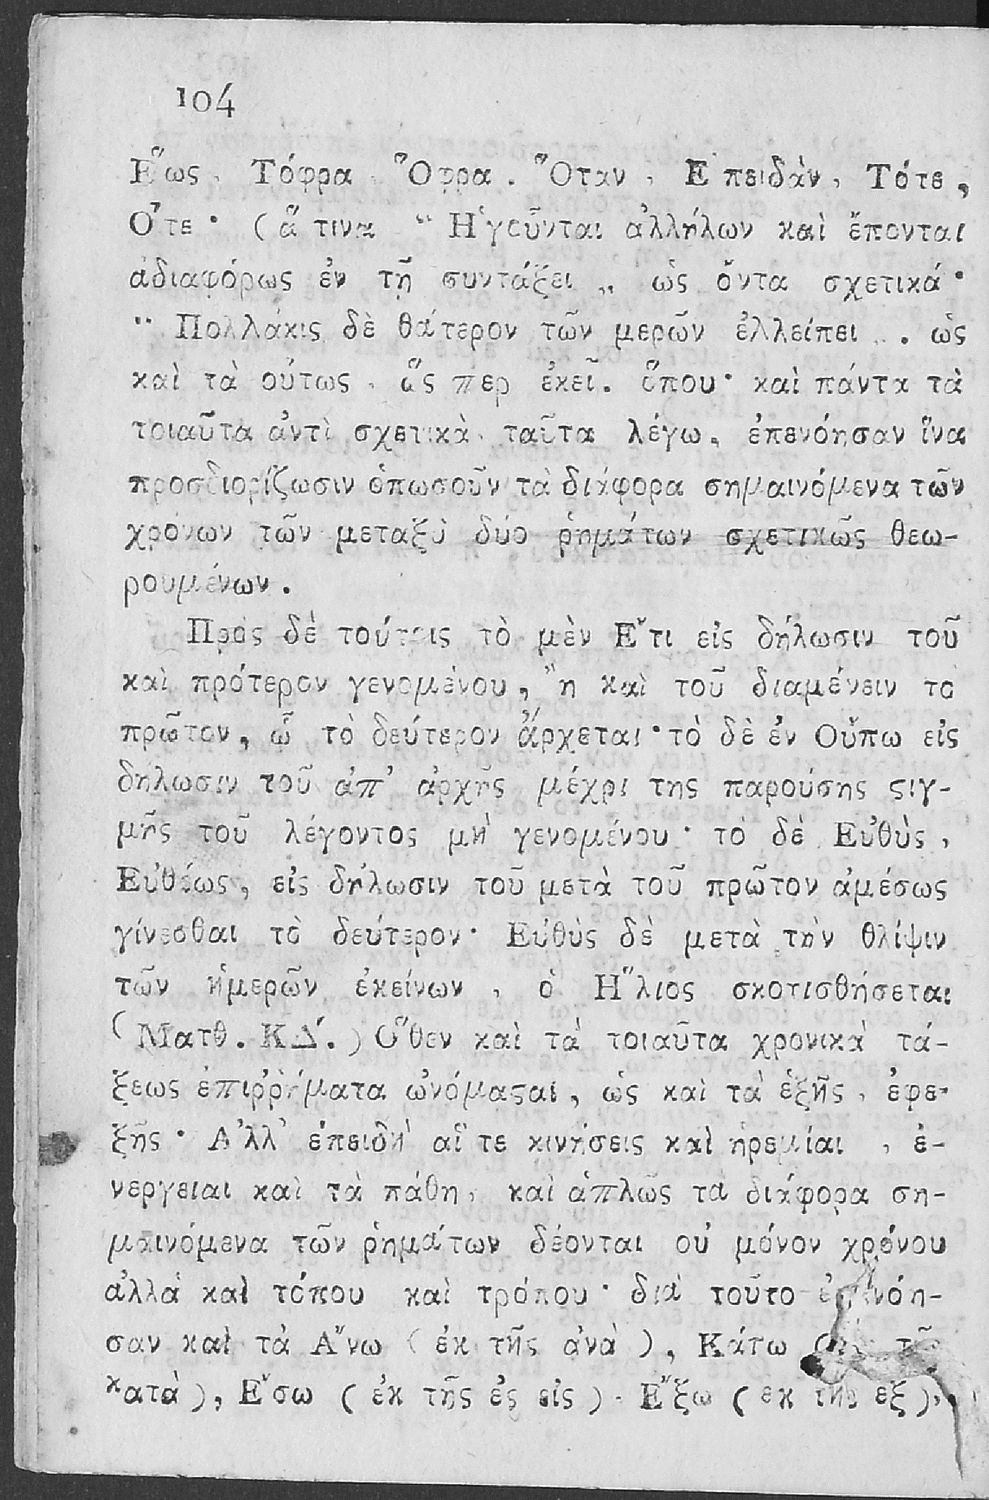 104
Ἕως, Τόφρα, Ὄφρα. Ὅταν, Ἐπειδὰν, Τότε,
Ὅτε· (ἅ τινα “ Ἡγοῦνται ἀλλήλων καὶ ἕπονται
ἀδιαφόρως ἐν τῇ συντάξει „ ὡς ὄντα σχετικά·
“ Πολλάκις δὲ θάτερον τῶν μερῶν ἐλλείπει „. ὡς
καὶ τὰ οὕτως, ὥς περ ἐκεῖ. ὅπου· καὶ πάντα τὰ
τοιαῦτα ἀντὶ σχετικὰ, ταῦτα λέγω, ἐπενόησαν ἵνα
προσδιορίζωσιν ὁπωσοῦν τὰ διάφορα σημαινόμενα τῶν
χρόνων τῶν μεταξὺ δύο ῥημάτων σχετικῶς θεω-
ρουμένων.
Πρὸς δὲ τούτοις τὸ μὲν Ἔτι εἰς δήλωσιν τοῦ
καὶ πρότερον γενομένου, ἢ καὶ τοῦ διαμένειν τὸ
πρῶτον, ᾧ τὸ δεύτερον ἄρχεται· τὸ δὲ ἐν Οὔπω εἰς
δήλωσιν τοῦ ἀπ’ ἀρχῆς μέχρι της παρούσης ϛιγ-
μῆς τοῦ λέγοντος μὴ γενομένου· τὸ δὲ Εὐθὺς,
Εὐθέως, εἰς δήλωσιν τοῦ μετὰ τοῦ πρῶτον ἀμέσως
γίνεσθαι τὸ δεύτερον· Εὐθὺς δὲ μετὰ τὴν θλίψιν
τῶν ἡμερῶν ἐκείνων, ὁ Ἥλιος σκοτισθήσεται
(Ματθ. ΚΔ΄.) Ὅθεν καὶ τὰ τοιαῦτα χρονικὰ τά-
ξεως ἐπιῤῥήματα ὠνόμαϛαι, ὡς καὶ τὰ ἑξῆς, ἐφε-
ξῆς· Ἀλλ’ ἐπειδὴ αἵ τε κινήσεις καὶ ἠρεμίαι, ἐ-
νεργειαι καὶ τὰ πάθη, καὶ ἁπλῶς τὰ διάφορα ση-
μαινόμενα τῶν ῥημάτων δέονται οὐ μόνον χρόνου
ἀλλὰ καὶ τόπου καὶ τρόπου· διὰ τοῦτο ἐπενόη-
σαν καὶ τὰ Ἄνω (ἐκ τῆς ἀνὰ), Κάτω (ἐκ τῆς
κατὰ), Ἔσω (ἐκ τῆς ἐς εἰς), Ἔξω (ἐκ τῆς ἐξ),